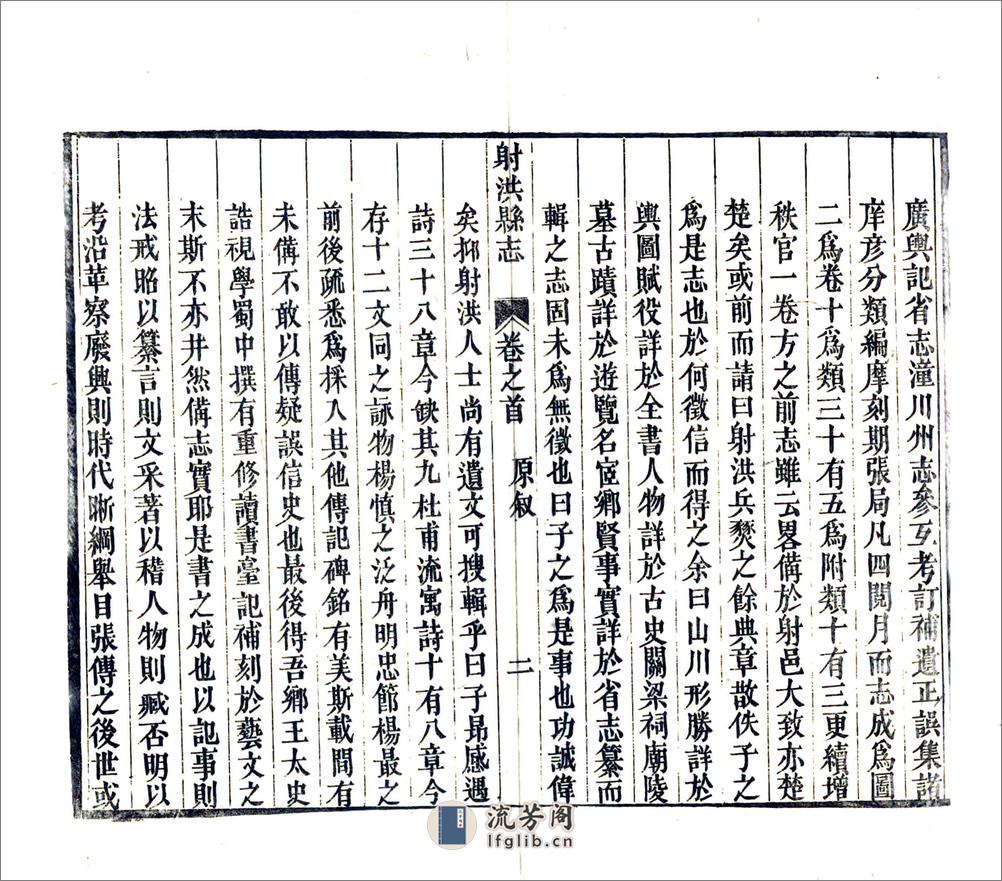 廣輿記省志潼川州志參互考訂補遺正誤集諸
庠彥分類編摩刻期張局凡四閱月而志成爲圖
二爲卷十爲類三十有五爲附類十有三更續增
秩官一卷方之前志雖云畧備於射邑大致亦楚
楚矣或前而請曰射洪兵燹之餘典章散佚子之
爲是志也於何徵信而得之余曰山川形勝詳於
輿圖賦役詳於全書人物詳於古史關梁祠廟陵
墓古蹟詳於遊覽名宦鄉賢事實詳於省志纂而
輯之志固未爲無徵也曰子之爲是事也功誠偉
射洪縣志 卷之首 原叙 二
矣抑射洪人士尚有遺文可搜輯乎曰子昻感遇
詩三十八章今缺其九杜甫流寓詩十有八章今
存十二文同之詠物楊慎之泛舟明忠節楊最之
前後疏悉爲採入其他傳記碑銘有美斯載間有
未備不敢以傳疑誤信史也最後得吾鄉王太史
誥視學蜀中撰有重修讀書臺記補刻於藝文之
末斯不亦井然備志實耶是書之成也以記事則
法戒昭以纂言則文采著以稽人物則臧否明以
考沿革察廢興則時代晣綱舉目張傳之後世或
流芳阁
lfglib.cn